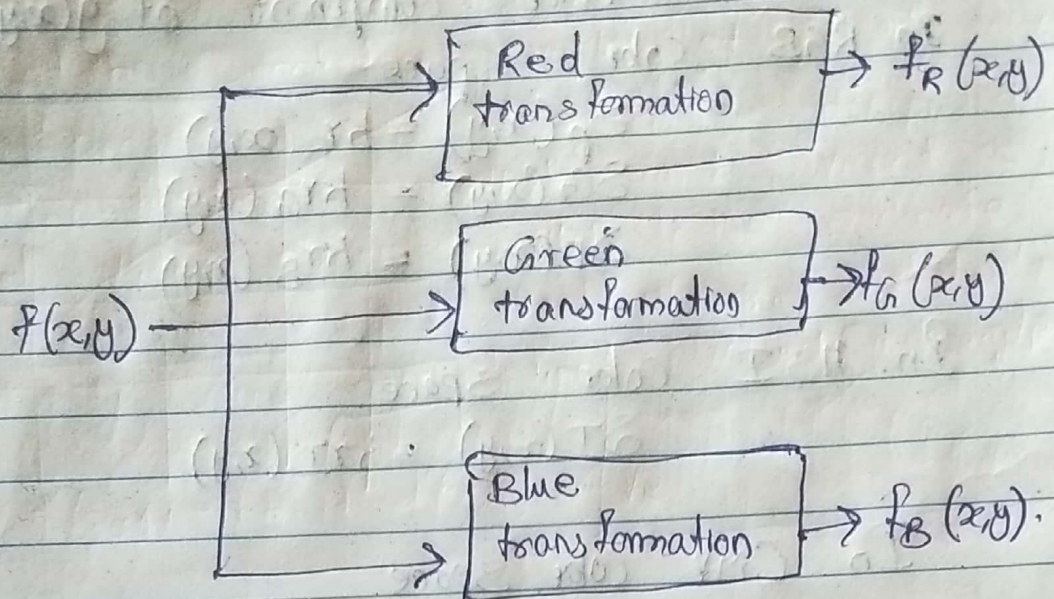 Red
transformation
f_R (x,y)
Green
transformation
f_G (x,y)
f(x,y)
Blue
transformation
f_B (x,y).